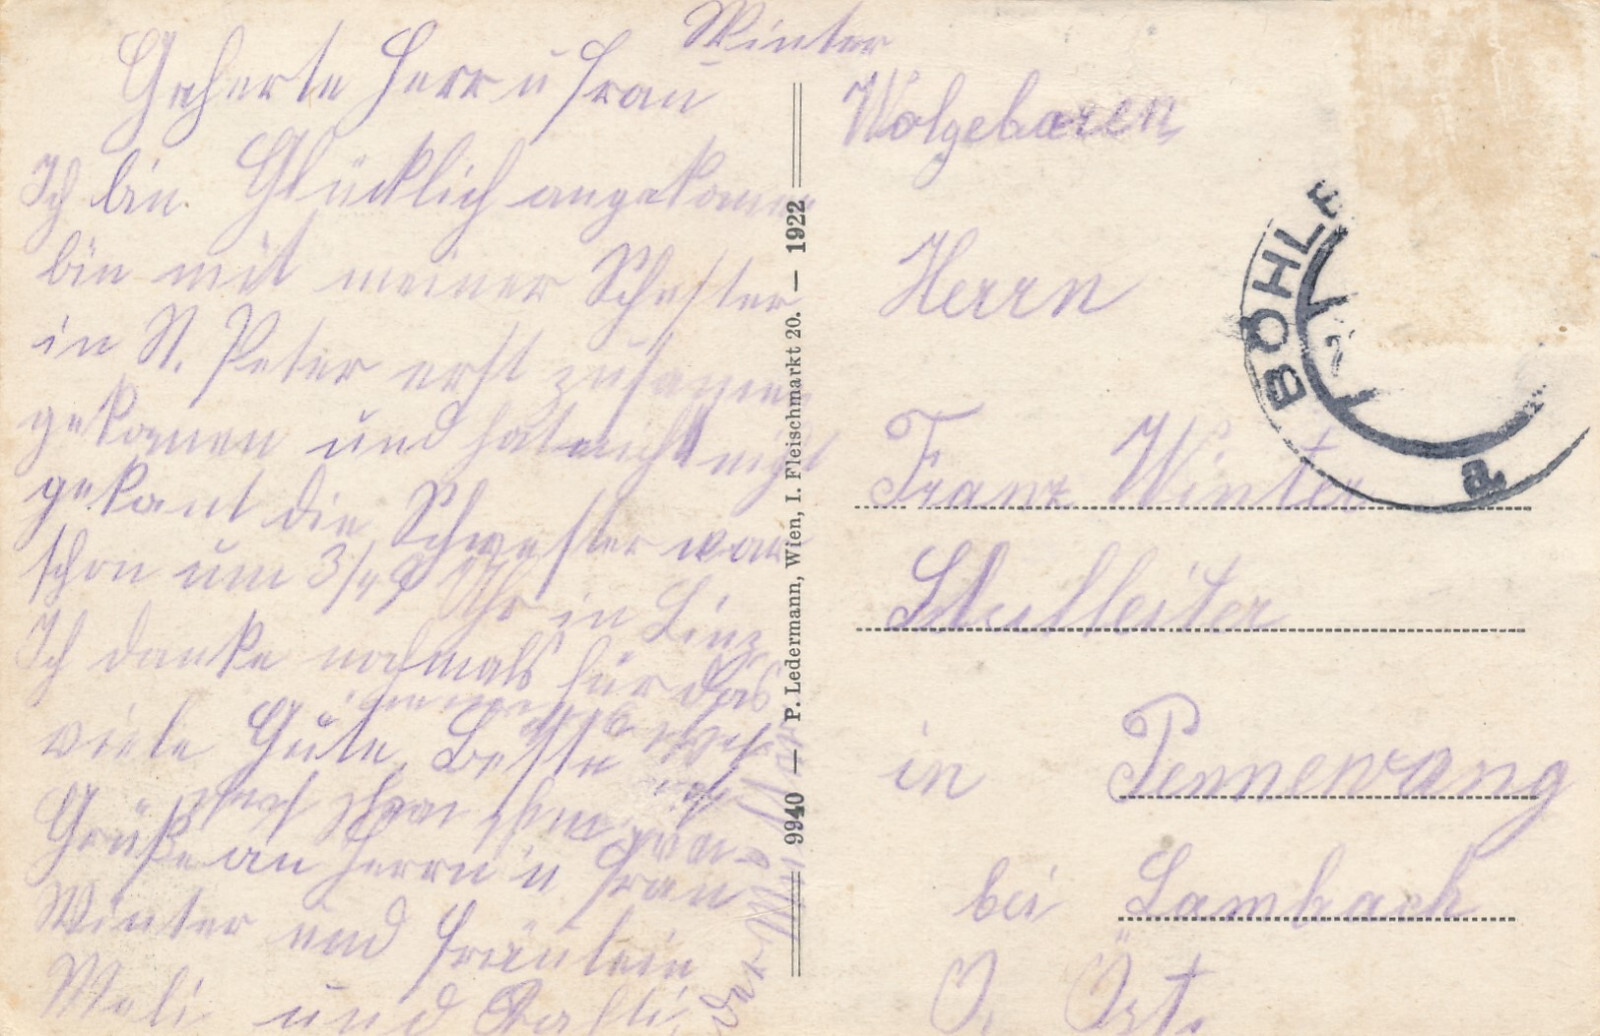 Winter
Geherte Herr u Frau
Ich bin Glücklich angekomen
bin mit meiner Schester
in St. Peter erst zusamen
gekomen und hat nicht
gekant die Schwester war
schon um 3/4 9 Uhr in Linz
Ich danke nochmals für das
viele Gute, Beste
Grüße an Herrn u Frau
Winter und Fräulein
Meli und
9940 — P. Ledermann, Wien, I. Fleischmarkt 20. — 1922
Wolgebaren
Herrn
Franz Winter
Schulleiter
in Pennewang
bei Lambach
O. Öst.
BÖHLE
a.